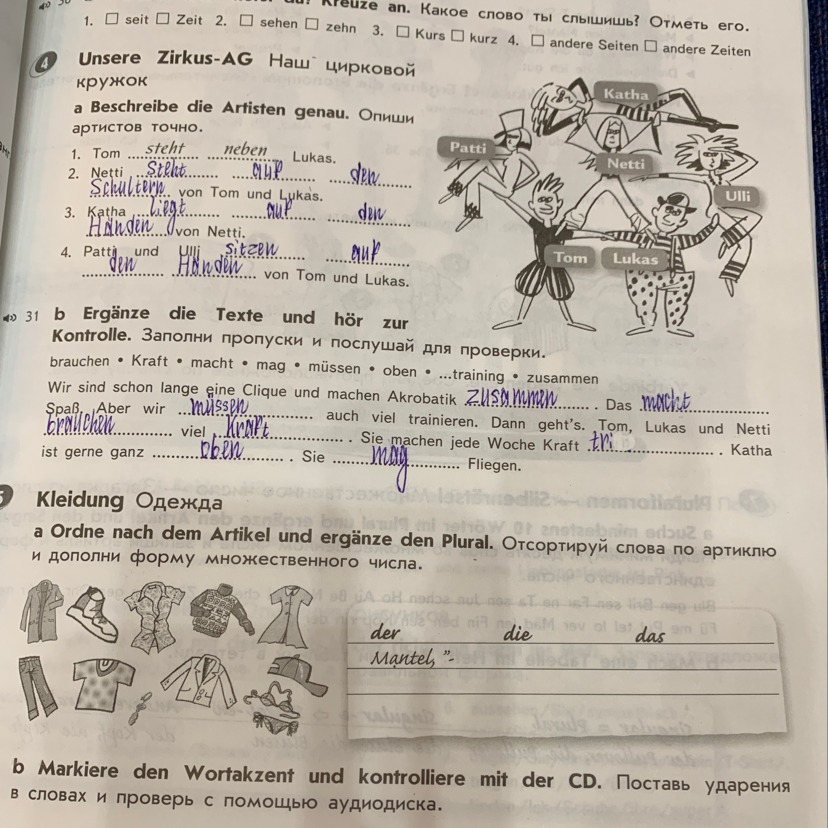 Kreuze an. Какое слово ты слышишь? Отметь его.
1. ☐ seit ☐ Zeit 2. ☐ sehen ☐ zehn 3. ☐ Kurs ☐ kurz 4. ☐ andere Seiten ☐ andere Zeiten
4 Unsere Zirkus-AG Наш цирковой
кружок
a Beschreibe die Artisten genau. Опиши
артистов точно.
1. Tom steht neben Lukas.
2. Netti steht auf den
Schultern von Tom und Lukas.
3. Katha liegt auf den
Händen von Netti.
4. Patti und Ulli sitzen auf
den Händen von Tom und Lukas.
Katha
Patti
Netti
Ulli
Tom
Lukas
31 b Ergänze die Texte und hör zur
Kontrolle. Заполни пропуски и послушай для проверки.
brauchen • Kraft • macht • mag • müssen • oben • ...training • zusammen
Wir sind schon lange eine Clique und machen Akrobatik zusammen. Das macht
Spaß. Aber wir müssen auch viel trainieren. Dann geht's. Tom, Lukas und Netti
brauchen viel Kraft. Sie machen jede Woche Kraft tri. Katha
ist gerne ganz oben. Sie mag Fliegen.
Kleidung Одежда
a Ordne nach dem Artikel und ergänze den Plural. Отсортируй слова по артиклю
и дополни форму множественного числа.
der die das
Mantel, ¨-
b Markiere den Wortakzent und kontrolliere mit der CD. Поставь ударения
в словах и проверь с помощью аудиодиска.